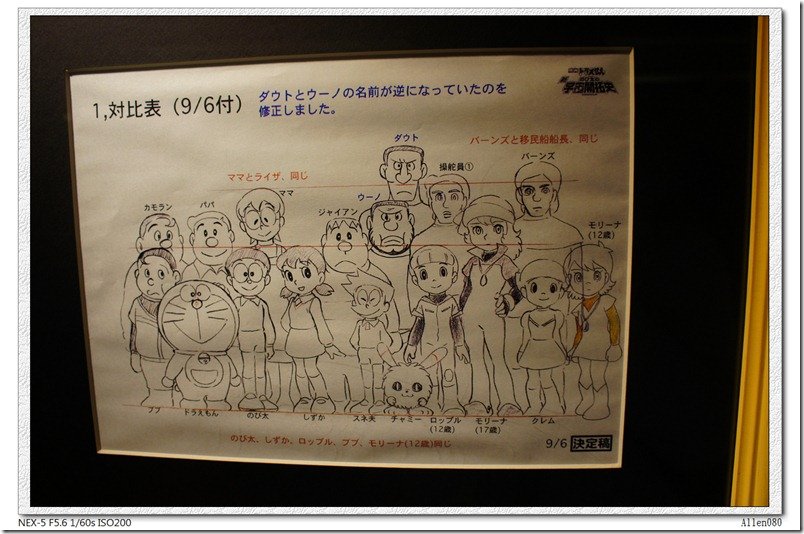 1,対比表（9/6付）
ダウトとウーノの名前が逆になっていたのを
修正しました。
ダウト
バーンズと移民船船長、同じ
操舵員①
バーンズ
ママとライザ、同じ
ママ
ウーノ
カモラン
パパ
ジャイアン
モリーナ
(12歳)
ブブ
ドラえもん
のび太
しずか
スネ夫
チャミー
ロップル
(12歳)
モリーナ
(17歳)
クレム
のび太、しずか、ロップル、ブブ、モリーナ(12歳)同じ
9/6 決定稿
NEX-5 F5.6 1/60s ISO200
Allen080